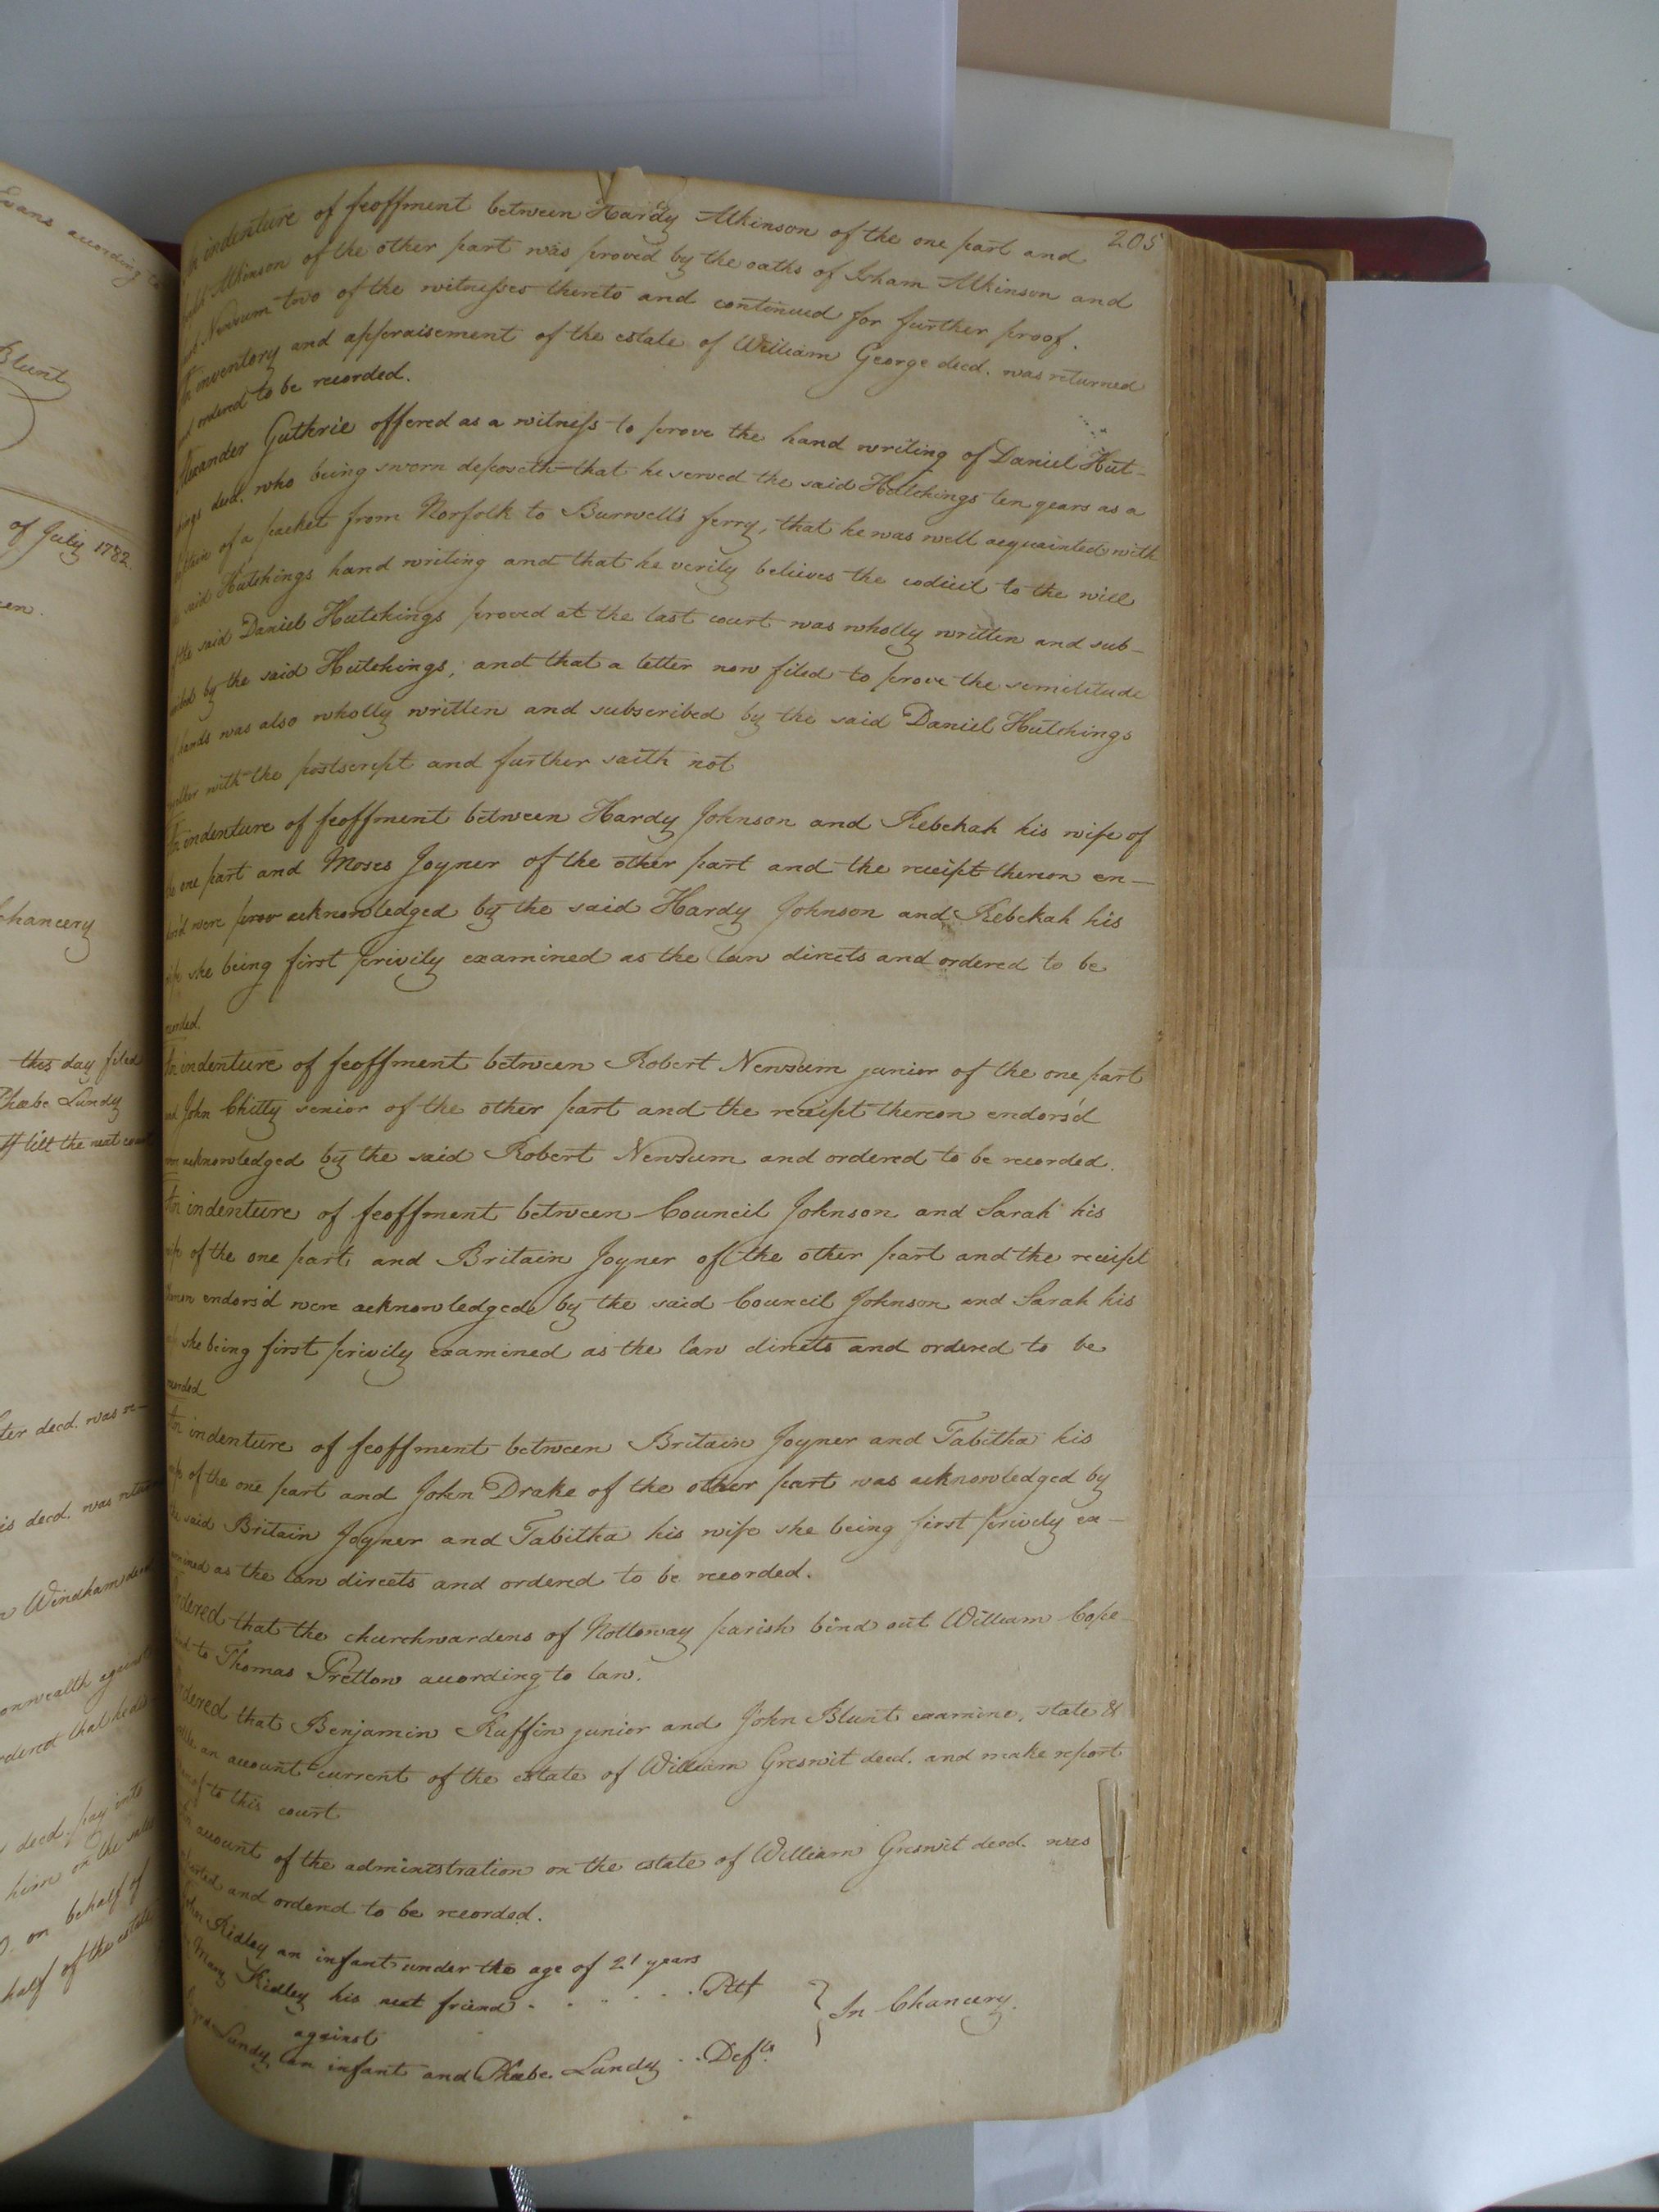 Evans according to
Blunt
of July 1782.
Chancery
this day filed
Phœbe Lundy
till the next court
decd. was re-
is decd. was
Windham
onwealth against
rdered that he
decd. pay into
him on the sales
on behalf of
half of the estate
205
An indenture of feoffment between Hardy Atkinson of the one part and
Atkinson of the other part was proved by the oaths of Isham Atkinson and
Newsum two of the witnesses thereto and continued for further proof.
An inventory and appraisement of the estate of William George decd. was returned
and ordered to be recorded.
Alexander Guthrie offered as a witness to prove the hand writing of Daniel Hut-
chings decd. who being sworn deposeth that he served the said Hutchings ten years as a
captain of a packet from Norfolk to Burwell's ferry, that he was well acquainted with
said Hutchings hand writing and that he verily believes the codicil to the will
of the said Daniel Hutchings proved at the last court was wholly written and sub-
scribed by the said Hutchings, and that a letter now filed to prove the similitude
of hands was also wholly written and subscribed by the said Daniel Hutchings
together with the postscript and further saith not
An indenture of feoffment between Hardy Johnson and Rebekah his wife of
the one part and Moses Joyner of the other part and the receipt thereon en-
dors'd were prov acknowledged by the said Hardy Johnson and Rebekah his
wife she being first privily examined as the law directs and ordered to be
recorded.
An indenture of feoffment between Robert Newsum junior of the one part
and John Chitty senior of the other part and the receipt thereon endors'd
were acknowledged by the said Robert Newsum and ordered to be recorded.
An indenture of feoffment between Council Johnson and Sarah his
wife of the one part and Britain Joyner of the other part and the receipt
thereon endors'd were acknowledged by the said Council Johnson and Sarah his
wife she being first privily examined as the law directs and ordered to be
recorded
An indenture of feoffment between Britain Joyner and Tabitha his
wife of the one part and John Drake of the other part was acknowledged by
the said Britain Joyner and Tabitha his wife she being first privily ex-
amined as the law directs and ordered to be recorded.
Ordered that the churchwardens of Nottoway parish bind out William Cope-
land to Thomas Pretlow according to law.
Ordered that Benjamin Ruffin junior and John Blunt examine, state &
settle an account current of the estate of William Greswit decd. and make report
thereof to this court
An account of the administration on the estate of William Greswit decd. was
and ordered to be recorded.
John Ridley an infant under the age of 21 years
Mary Ridley his next friend . . . . . . Pltf
against
Lundy an infant and Phœbe Lundy . . Defts.
} In Chancery.